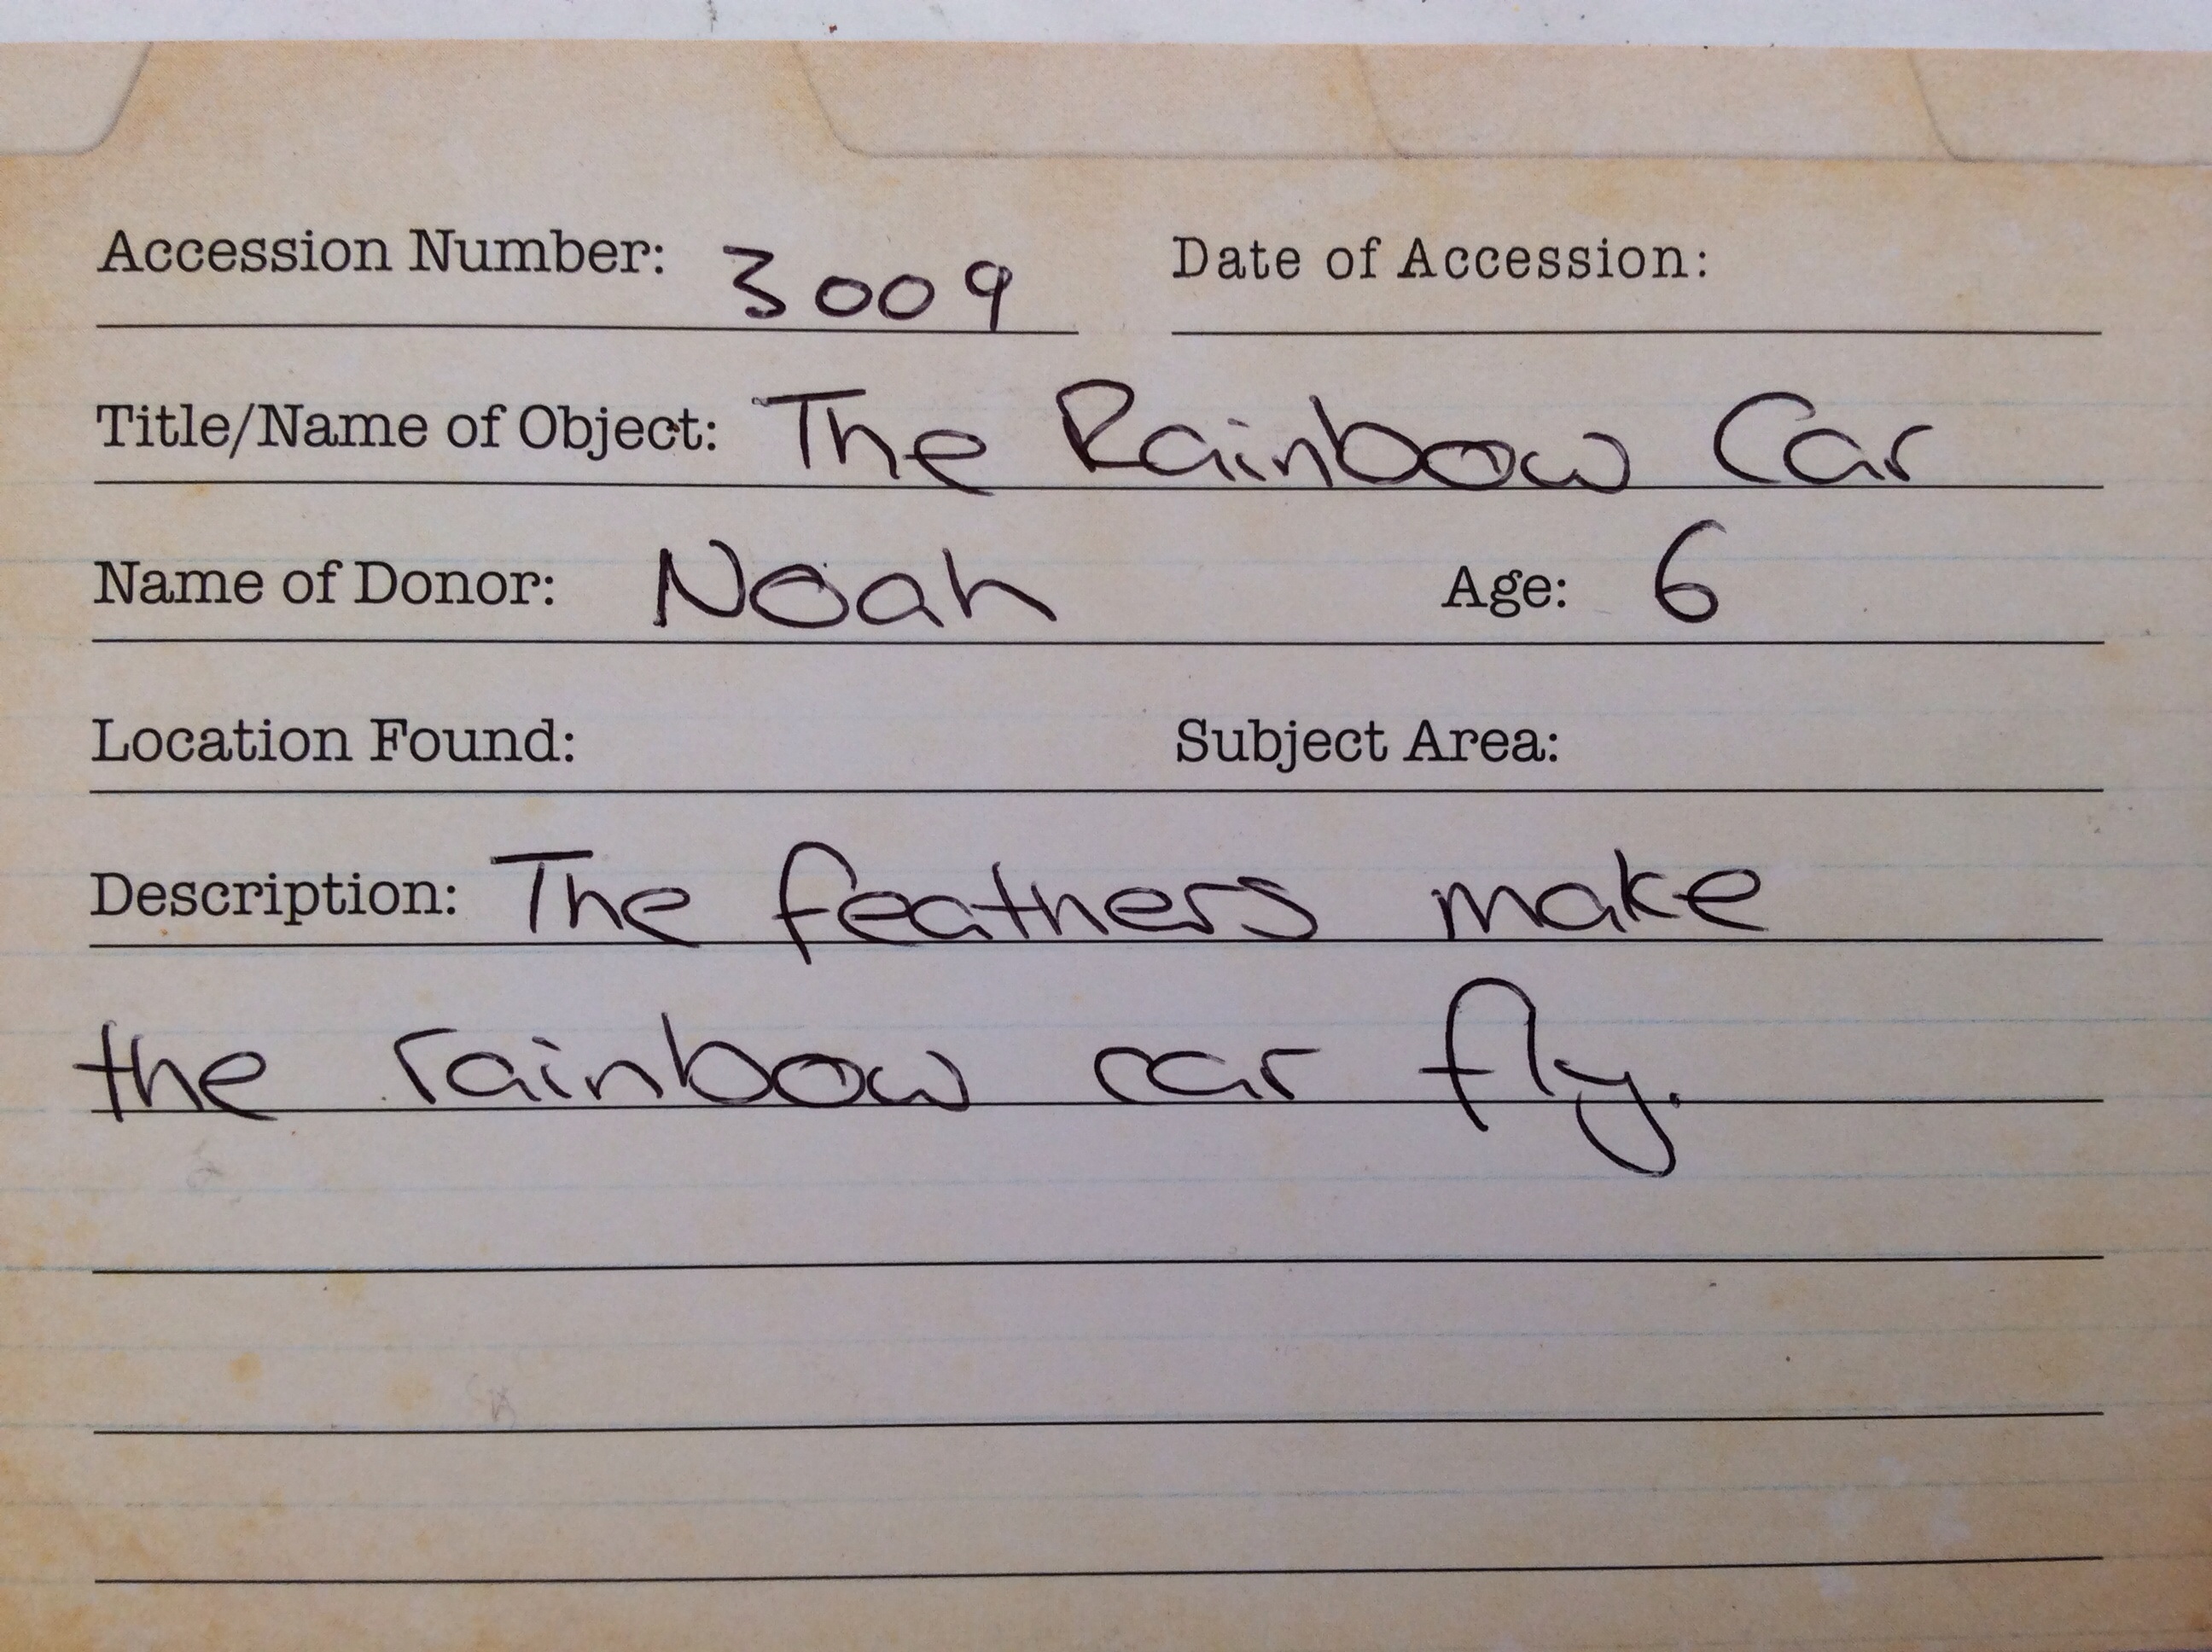 Accession Number: 3009 Date of Accession:
Title/Name of Object: The Rainbow Car
Name of Donor: Noah Age: 6
Location Found: Subject Area:
Description: The feathers make
the rainbow car fly.